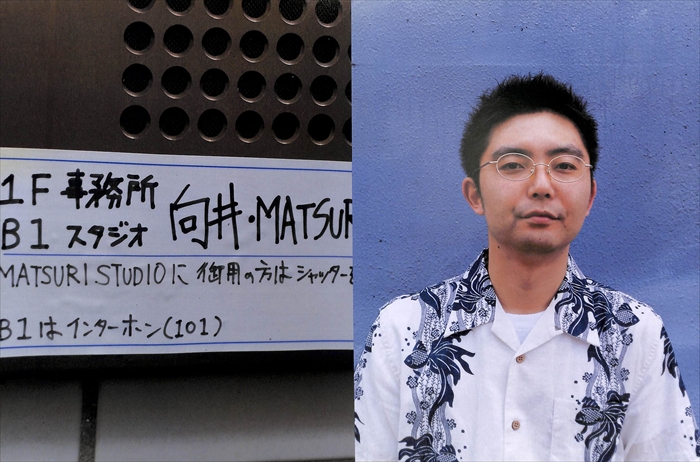 1F 事務所
B1 スタジオ
向井・MATSURI
MATSURI STUDIOに 御用の方は シャッターを
B1はインターホン(101)